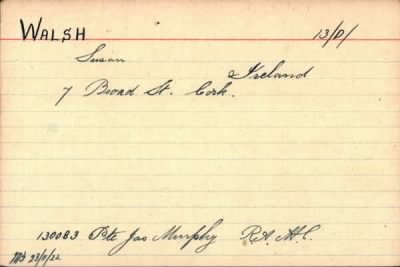 WALSH 13/D/
Susan
7 Broad St. Cork. Ireland
130083 Pte Jas Murphy R.A.M.C.
23/11/22